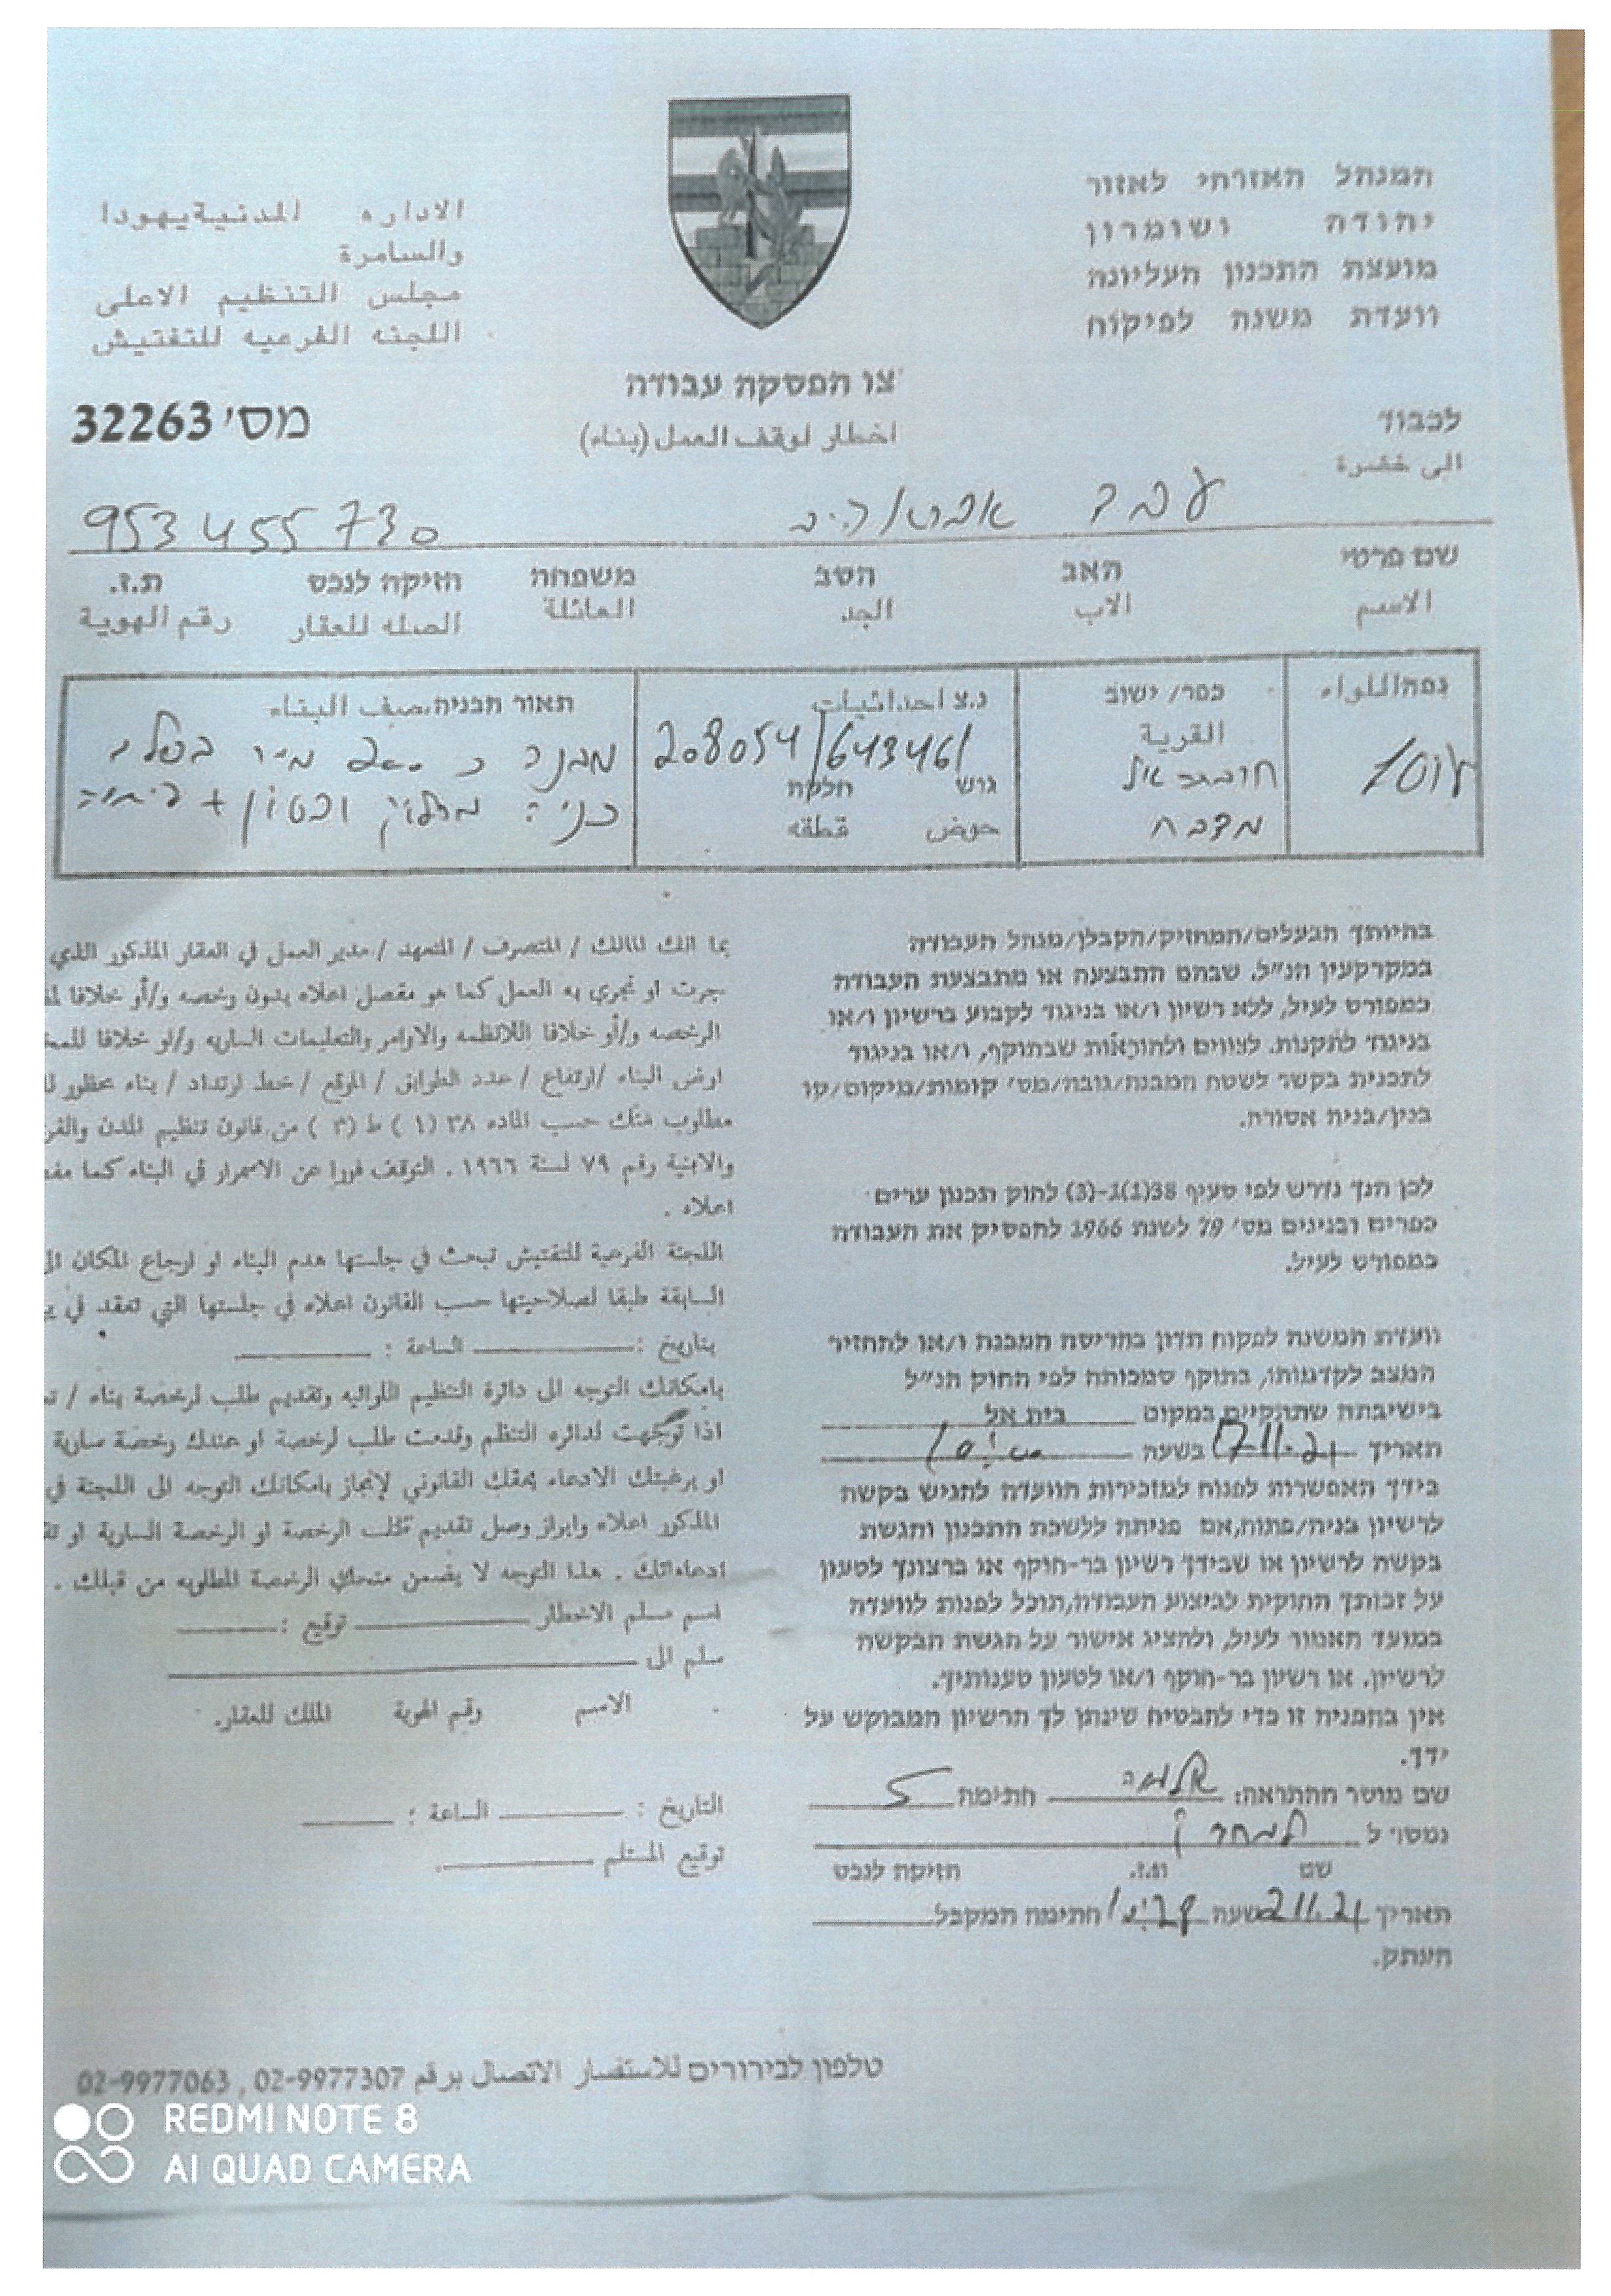 המנהל האזרחי לאזור
יהודה ושומרון
מועצת התכנון העליונה
וועדת משנה לפיקוח
الاداره المدنية يهودا
والسامرة
مجلس التنظيم الاعلى
اللجنه الفرعيه للتفتيش
צו הפסקה עבודה
اخطار لوقف العمل (بناء)
מס' 32263
לכבוד
الى حضرة
953455730
שם פרטי האב הסב משפחה הזיקה לנכס ת.ז.
الاسم الاب الجد العائلة الصله للعقار رقم الهوية
נפה اللواء
כפר/ ישוב
القرية
חורבת אל
מדבח
נ.צ احداثيات
208054/643461
גוש חלקה
حوض قطقه
תאור הבניה وصف البناء
מבנה כ 200 מ"ר בשלבי
בהיותך הבעלים/המחזיק/הקבלן/מנהל העבודה
במקרקעין הנ"ל, שבהם התבצעה או מתבצעת העבודה
כמפורט לעיל, ללא רשיון ו/או בניגוד לקבוע ברשיון ו/או
בניגוד לתקנות, לצווים ולהוראות שבתוקף, ו/או בניגוד
לתכנית בקשר לשטח המבנה/גובה/מס' קומות/מיקום/קו
בנין/בנית אסורה.
לכן הנך נדרש לפי סעיף 38(1)1-(3) לחוק תכנון ערים
כפרים ובנינים מס' 79 לשנת 1966 להפסיק את העבודה
כמפורט לעיל.
וועדת המשנה לפקוח תדון בהריסת המבנה ו/או להחזיר
המצב לקדמותו, בתוקף סמכותה לפי החוק הנ"ל
בישיבתה שתתקיים במקום בית אל
תאריך 17.11.21 בשעה
בידך האפשרות לפנות למזכירות הוועדה להגיש בקשה
לרשיון בניה/פתוח,אם פניתה ללשכת התכנון והגשת
בקשה לרשיון או שבידך רשיון בר-תוקף או ברצונך לטעון
על זכותך החוקית לביצוע העבודה,תוכל לפנות לוועדה
במועד האמור לעיל, ולהציג אישור על הגשת הבקשה
לרשיון, או רשיון בר-תוקף ו/או לטעון טענותיך.
אין בהפניה זו כדי להבטיח שינתן לך הרשיון המבוקש על
ידך.
שם מוסר ההתראה: חתימה
נמסר ל
שם ת.ז. הזיקה לנכס
תאריך 2.11.21 שעה חתימת המקבל
העתק.
بما انك المالك / المتصرف / المتعهد / مدير العمل في العقار المذكور الذي
جرت او تجري به العمل كما هو مفصل اعلاه بدون رخصه و/أو خلافا
الرخصه و/أو خلافا للانظمه والاوامر والتعليمات الساريه و/او خلافا
ارض البناء /ارتفاع / عدد الطوابق / الموقع / خط ارتداد / بناء محظور
مطلوب منك حسب الماده ٣٨ (١) ط (٣) من قانون تنظيم المدن
والابنية رقم ٧٩ لسنة ١٩٦٦ . التوقف فورا عن الاسمرار في البناء كما
اعلاه .
اللجنة الفرعية للتفتيش تبحث في جلستها هدم البناء او ارجاع المكان
السابقة طبقا لصلاحيتها حسب القانون اعلاه في جلستها التي تعقد في
بتاريخ : الساعة :
بامكانك التوجه الى دائرة التنظيم اللوائيه وتقديم طلب لرخصة بناء /
اذا توجهت لدائره التنظم وقدمت طلب لرخصة او عندك رخصة سارية
او برغبتك الادعاء بحقك القانوني لإنجاز بامكانك التوجه الى اللجنة في
المذكور اعلاه وابراز وصل تقديم طلب الرخصة او الرخصة السارية او
ادعاءاتك . هذا التوجه لا يضمن منحك الرخصة المطلوبه من قبلك .
اسم مسلم الاخطار توقيع :
سلم الى
الاسم رقم الهوية الملك للعقار.
التاريخ : الساعة :
توقيع المستلم
טלפון לבירורים للاستفسار الاتصال برقم 02-9977307 , 02-9977063
REDMI NOTE 8
AI QUAD CAMERA